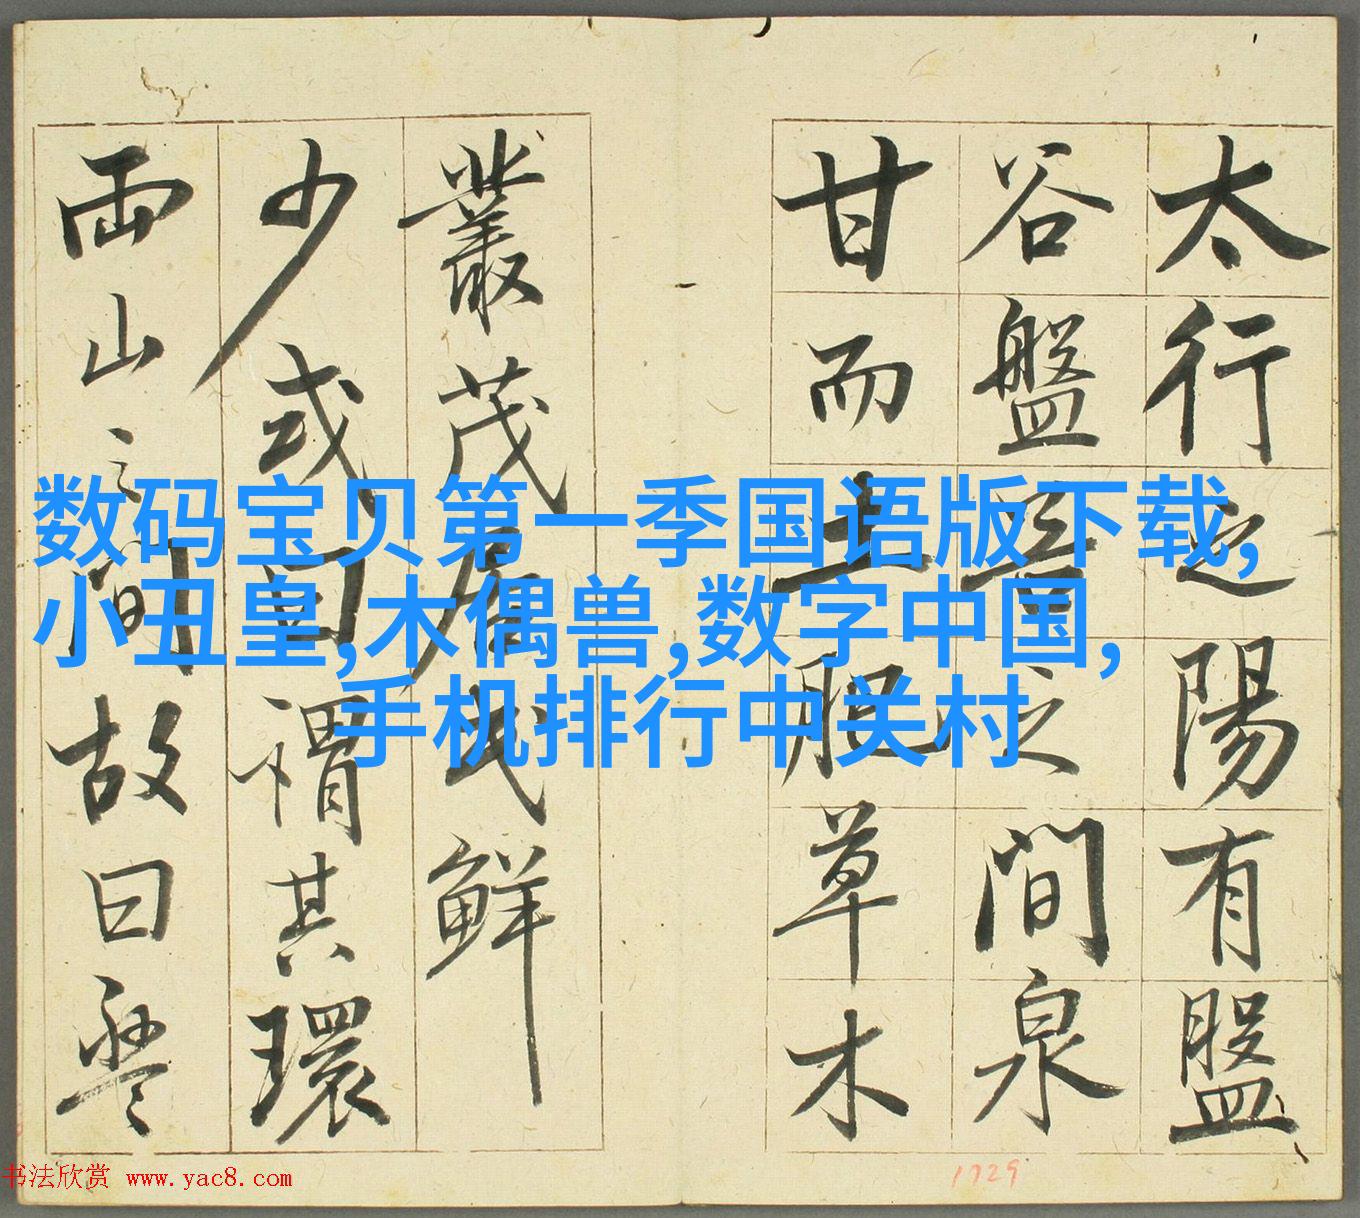 太行之陽有盤
谷盤之間泉
甘而土肥草木
叢茂居民鮮
少或曰謂其環
兩山之間故曰盤
数码宝贝第一季国语版下载,
小丑皇,木偶兽,数字中国,
手机排行中关村
书法欣赏 www.yac8.com
1729